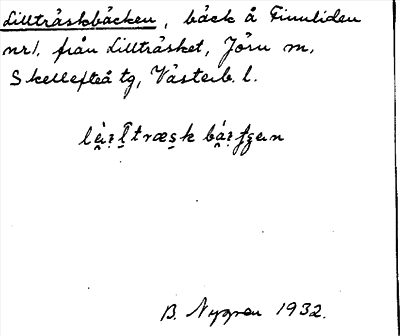 Lillträskbäcken, bäck å Finnliden
nr1. från Lillträsket, Jörn m,
Skellefteå tg, Västerb. l.
B. Nygren 1932.